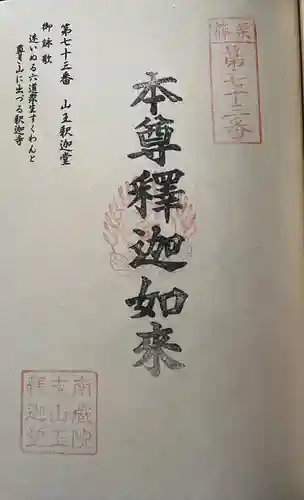 篠栗
第七十三番
本尊釋迦如来
第七十三番　山王釈迦堂
御詠歌
迷いぬる六道衆生すくわんと
尊き山に出づる釈迦寺
南蔵院
山王
釈迦堂